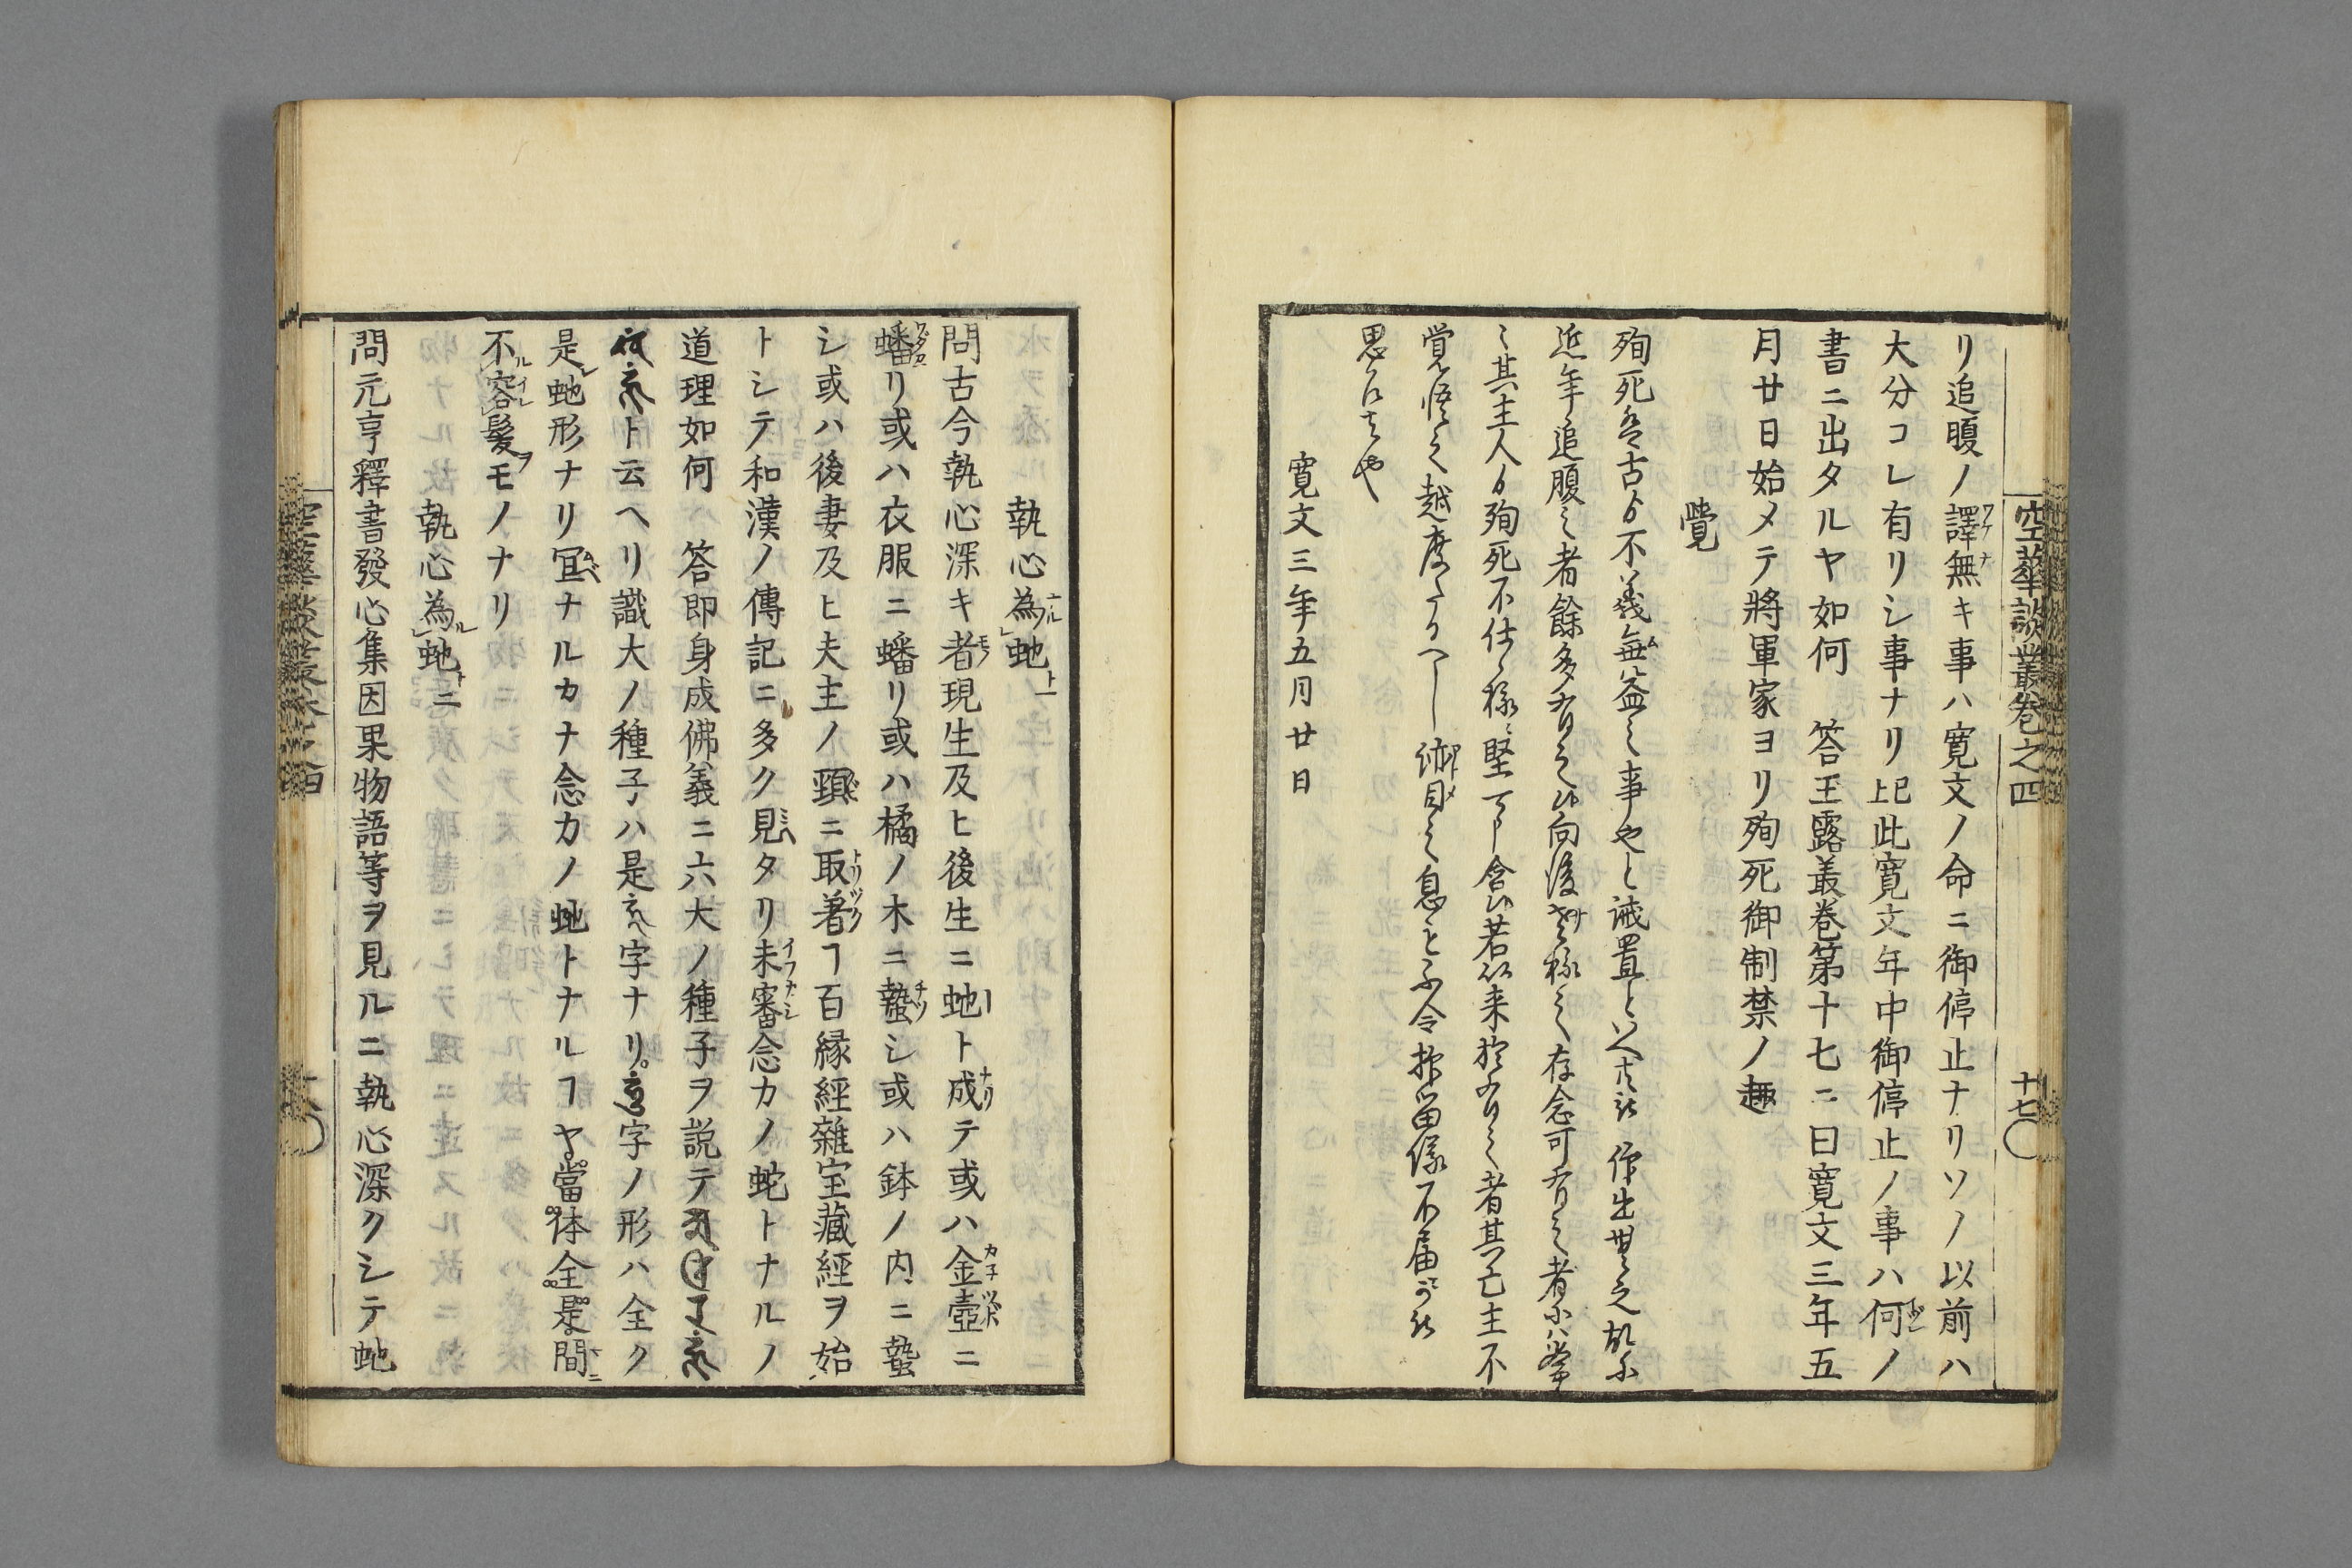 空華談叢巻之四 十七
リ追腹ノ譯無キ事ハ寛文ノ命ニ御停止ナリソノ以前ハ
大分コレ有リシ事ナリ已上此寛文年中御停止ノ事ハ何ノ
書ニ出タルヤ如何 答玉露叢巻第十七ニ曰寛文三年五
月廿日始メテ將軍家ヨリ殉死御制禁ノ趣
覺
殉死者古ゟ不義無益之事也と誡置といへ共 仰出無之故ニ
近年追腹之者餘多有之候向後左様之存念可有之者ニハ常
々其主人ゟ殉死不仕様ニ堅可申含候若以来於有之者其亡主不
覚悟之越度たるへし 跡目之息も不令抑留儀不届可被
思召者也
寛文三年五月廿日
執心為蛇一
問古今執心深キ者現生及ヒ後生ニ虵ト成テ或ハ金壺ニ
蟠リ或ハ衣服ニ蟠リ或ハ橘ノ木ニ蟄シ或ハ鉢ノ内ニ蟄
シ或ハ後妻及ヒ夫主ノ頸ニ取著ヿ百縁經雜宝藏經ヲ始
トシテ和漢ノ傳記ニ多ク見タリ未審念力ノ蛇トナルノ
道理如何 答即身成佛義ニ六大ノ種子ヲ説テ
ト云ヘリ識大ノ種子ハ是字ナリ字ノ形ハ全ク
是虵形ナリ冝ナルカナ念力ノ虵トナルヿヤ當体全是間
不容髪モノナリ
執心為虵二
問元亨釋書發心集因果物語等ヲ見ルニ執心深クシテ虵